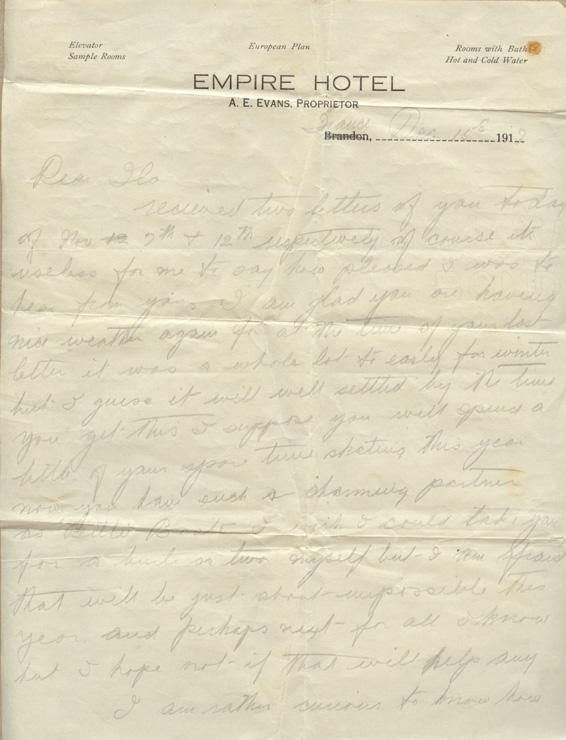 Elevator
Sample Rooms
European Plan
Rooms with Bath
Hot and Cold Water
EMPIRE HOTEL
A. E. EVANS, PROPRIETOR
France Dec
Brandon, 1917
Dear
recieved two letters of you today
of Nov 12 7th + 12th respectively of course its
useless for me to say how pleased I was to
hear from you. I am glad you are having
nice weather again for at the time of your last
letter it was a whole lot to early for winter
but I guess it will well settled by the time
you get this I suppose you will spend a
little of your spare time skating this year
now you have such a charming partner
as I wish I could take you
for a two myself but I am afraid
that will be just about impossible this
year and perhaps next for all I know
but I hope not if that will help any
I am rather curious to know how